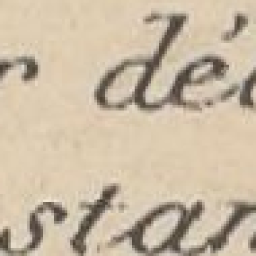 r dé
stan